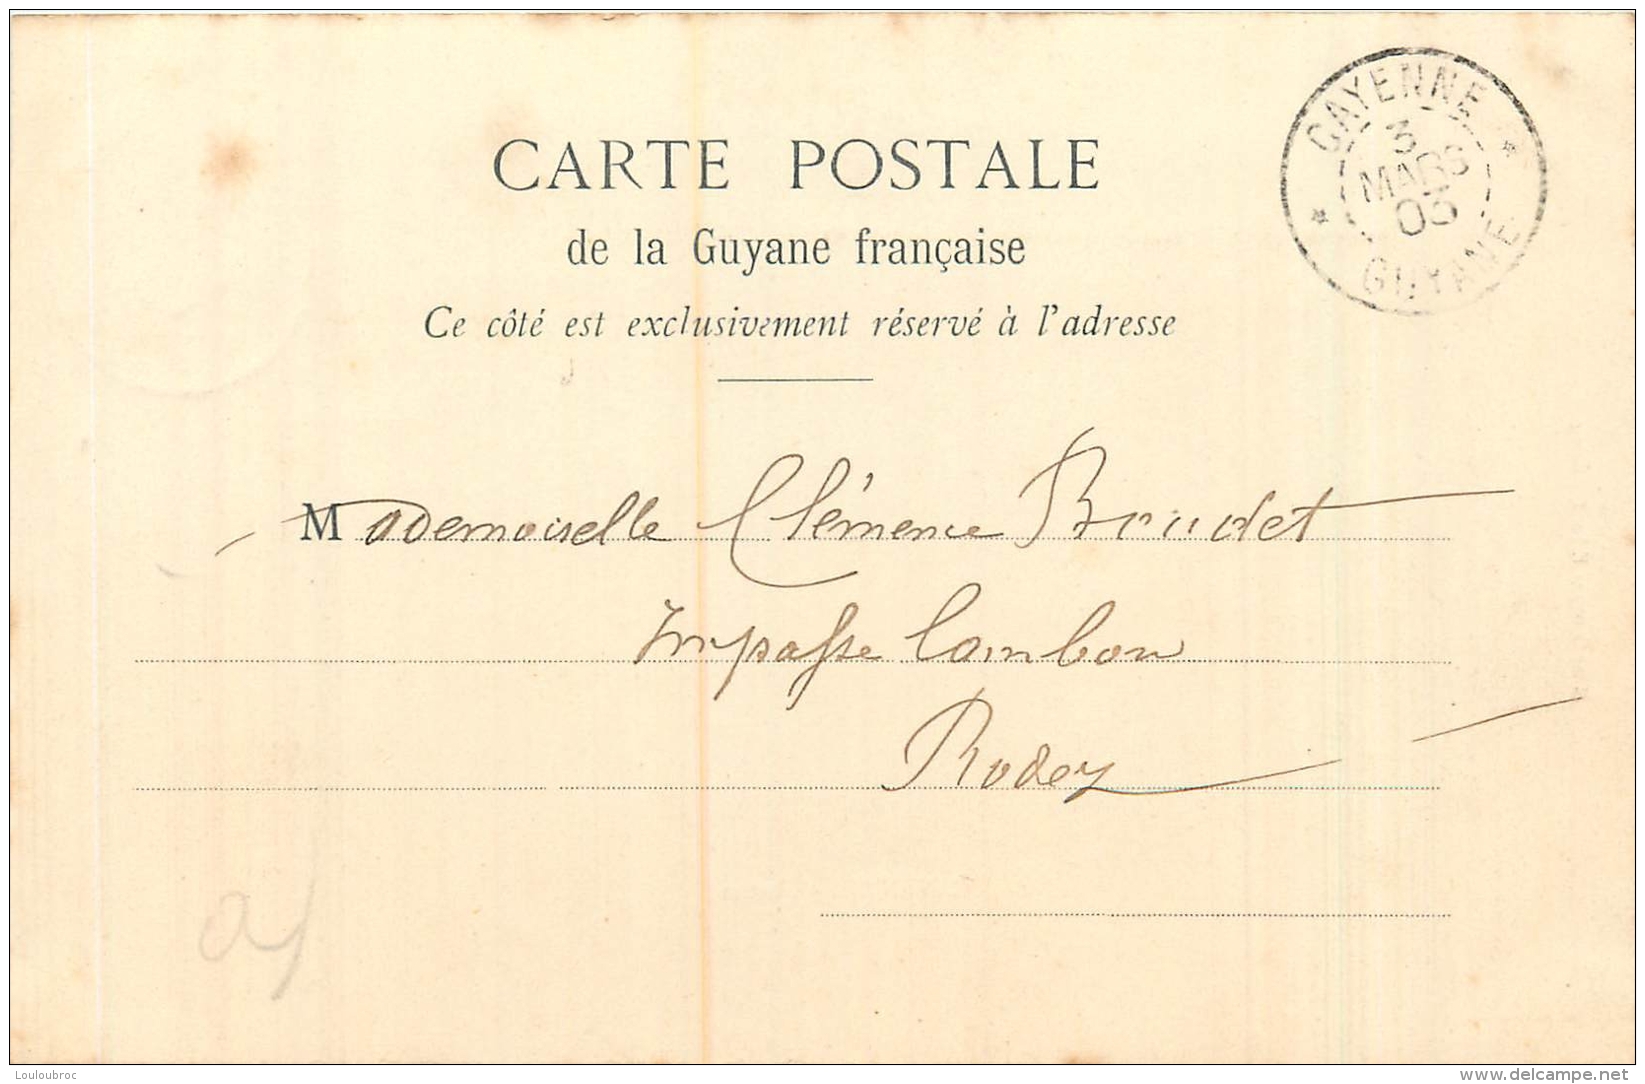 CARTE POSTALE
de la Guyane française
Ce côté est exclusivement réservé à l'adresse
CAYENNE
3
MARS
05
GUYANE
Mademoiselle Clémence Boudet
Impasse Cambon
Rodez
Louloubroc
delcampe.net